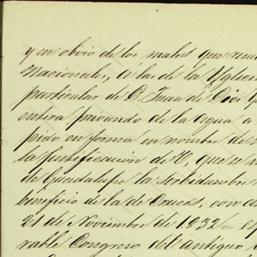 y en obvio de los males que
Nacionales, a las de la Yglesi
particular de D. Juan de Dios
privando de la agua a
pido en forma en nombre de
la justificacion de V, que se
de Guadalupe la servidumbre
beneficio de la de Cruces, con
21 de Noviembre de 1832=
rable Congreso del Antiguo